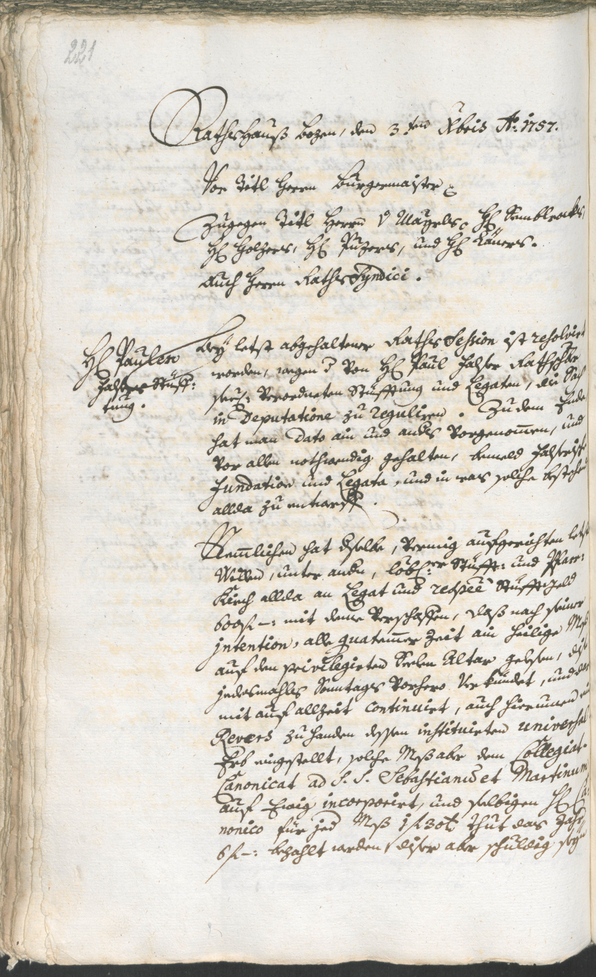 221
Rathshauß Bozen, den 3ten Xbris Ao: 1757.
Vor Titl Herrn Burgermaister
Zugegen Titl Herrn v Mayrls, H:
H: Holzers, H: Puzers, und H:
Auch Herrn Raths Syndici.
H: Paulen
Halbers Stüff:
tung.
Bey letst abgehaltener Raths Session ist resolvirt
worden, wegen d von H: Paul
verordneten Stüfftung und Legaten, die Sach
in Deputatione zu reguliren. Zu dem Ende
hat man dato ain und anders vorgenommen, und
vor allen nothwendig gehalten,
Fundation und Legata, und in was solche bestehen
allda zu
Nemmlichen hat dselbe, vermig aufgerichten letst
Willen, unter andern, löbl: Stüfft: und Pfarr:
Kirch allda an Legat und respee Stüfftgeld
600 f —: mit deme verschaffen, daß nach seiner
intention, alle quatemer Zeit ain heilige Meß
auf dem privilegierten Seelen Altar gelesen, dise
jedesmahls Sonntags vorhero verkündet, und
mit auf allzeit continuirt, auch hierumen ein
Revers zu handen dessen instituierten universal
Erb eingestellt, solche Meß aber dem Collegiat
Canonicat ad S. S. Sebastianu et Martinum
auf Ewig incorporirt, und selbigen H: Ca:
nonico für jede Meß 1 f 30 x thut das Jahr
6 f —: bezahlt werden, diser aber schuldig seyn